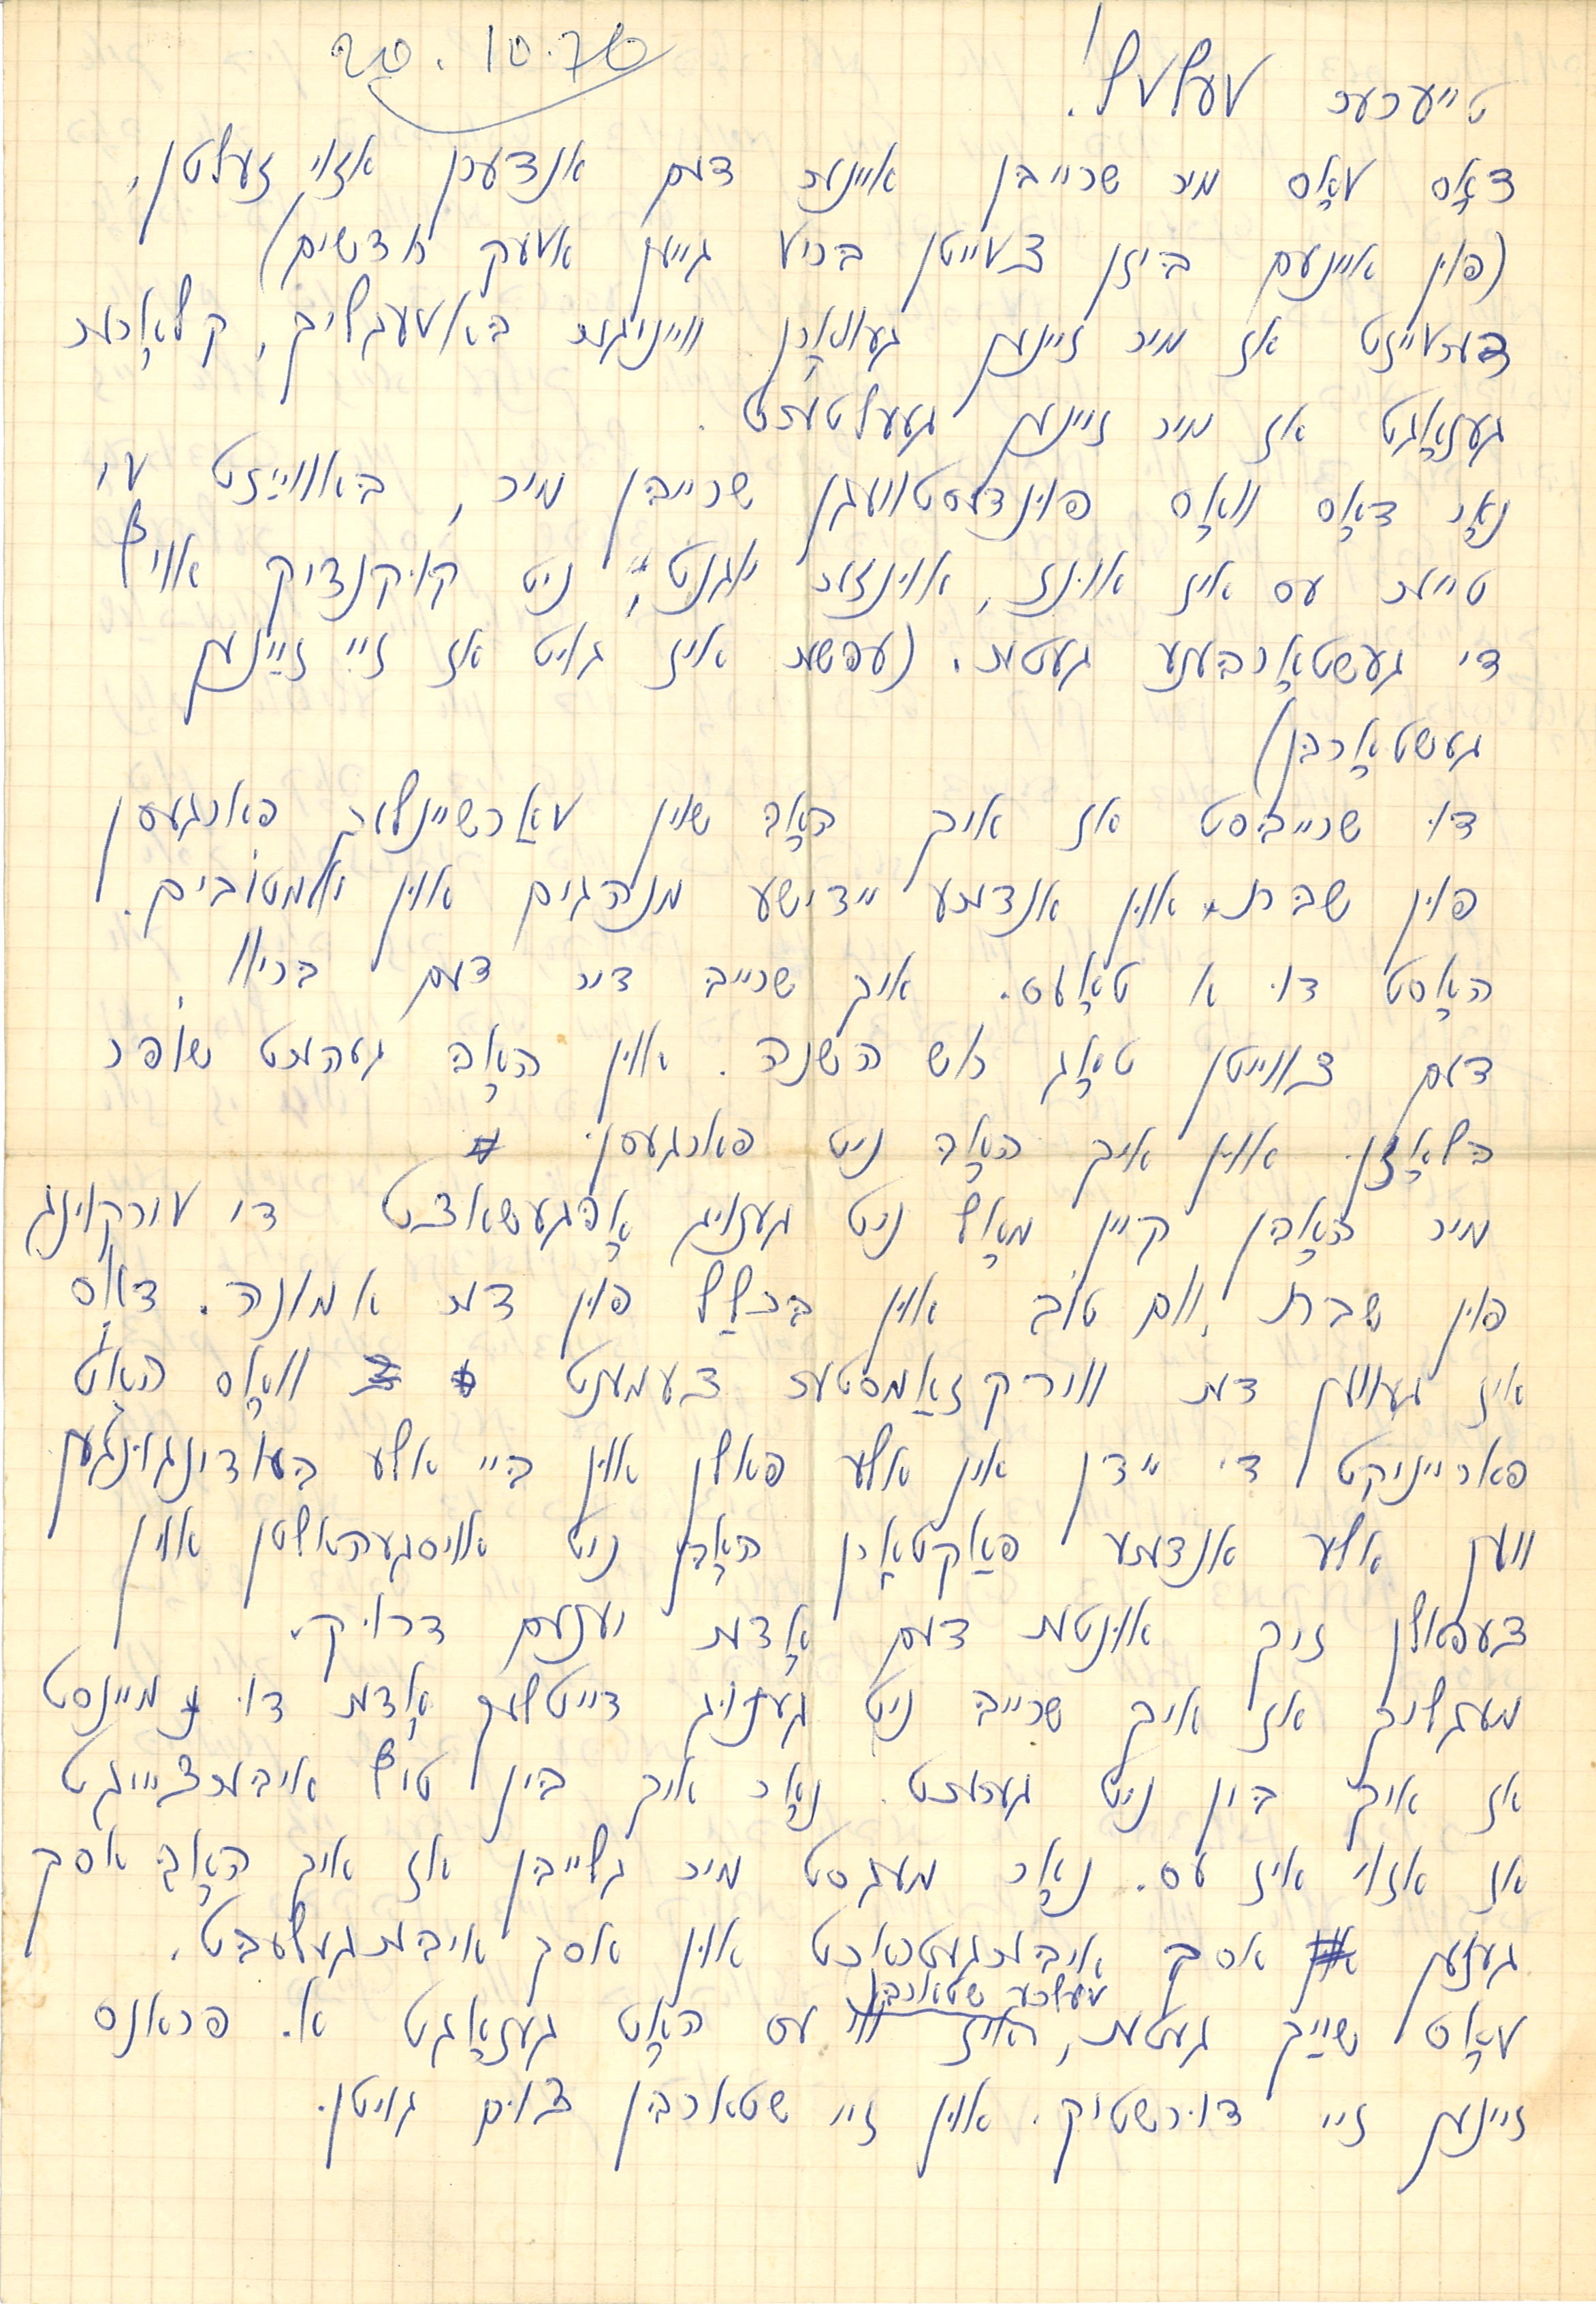 טייערער וועלוול!
דאָס וואָס מיר שרייבן איינער דעם אנדערן אזוי זעלטן,
(פון איינעם ביזן צווייטן בריוו גייען אוועק חדשים)
דערווייזט אז מיר זיינען געוואָרן ווייניגער באוועגליך, קלאָרער
געזאָגט אז מיר זיינען געעלטערט.
נאָר דאָס וואָס פונדעסטוועגן שרייבן מיר, באווייזט ווי
טייער עס איז אונז, אונזער יוגנט, ניט קוקנדיק אויף
די געשטאָרבענע געטער. (עפשר איז גוט אז זיי זיינען
געשטאָרבן)
דו שרייבסט אז איך האָב שוין וואַרשיינלעך פארגעסן
פון שבת און אנדערע יידישע מנהגים און יומטובים.
האָסט דו א טאָעס. איך שרייב דיר דעם בריוו,
דעם צווייטן טאָג ראש השנה. און האָב געהערט שופר
בלאָזן און איך האָב ניט פארגעסן.
מיר האָבן קיין מאָל ניט גענוג אָפּגעשאצט די ווירקונג
פון שבת, יום טוב און בכלל פון דער אמונה. דאָס
איז געווען דער ווירקזאַמסטער צעמענט וואָס האָט
פארייניקט די יידן אין אלע פאלן און ביי אלע באדינגונגען
ווען אלע אנדערע פאַקטאָרן האָבן ניט אויסגעהאלטן און
צעפאלן זיך אונטער דעם אָדער יענעם דרוק.
מעגליך אז איך שרייב ניט גענוג דייטלעך אָדער דו מיינסט
אז איך בין ניט גערעכט. נאָר איך בין טיף איבערצייגט
אז אזוי איז עס. נאָר מעגסט מיר גלייבן אז איך האָב אסך
געזען אסך איבערגעטראכט און אסך איבערגעלעבט.
וואָס שייך געטער, וועלכע שטארבן ווי עס האָט געזאָגט א. פראנס
זיינען זיי דורשטיק. און זיי שטארבן צום גוטן.